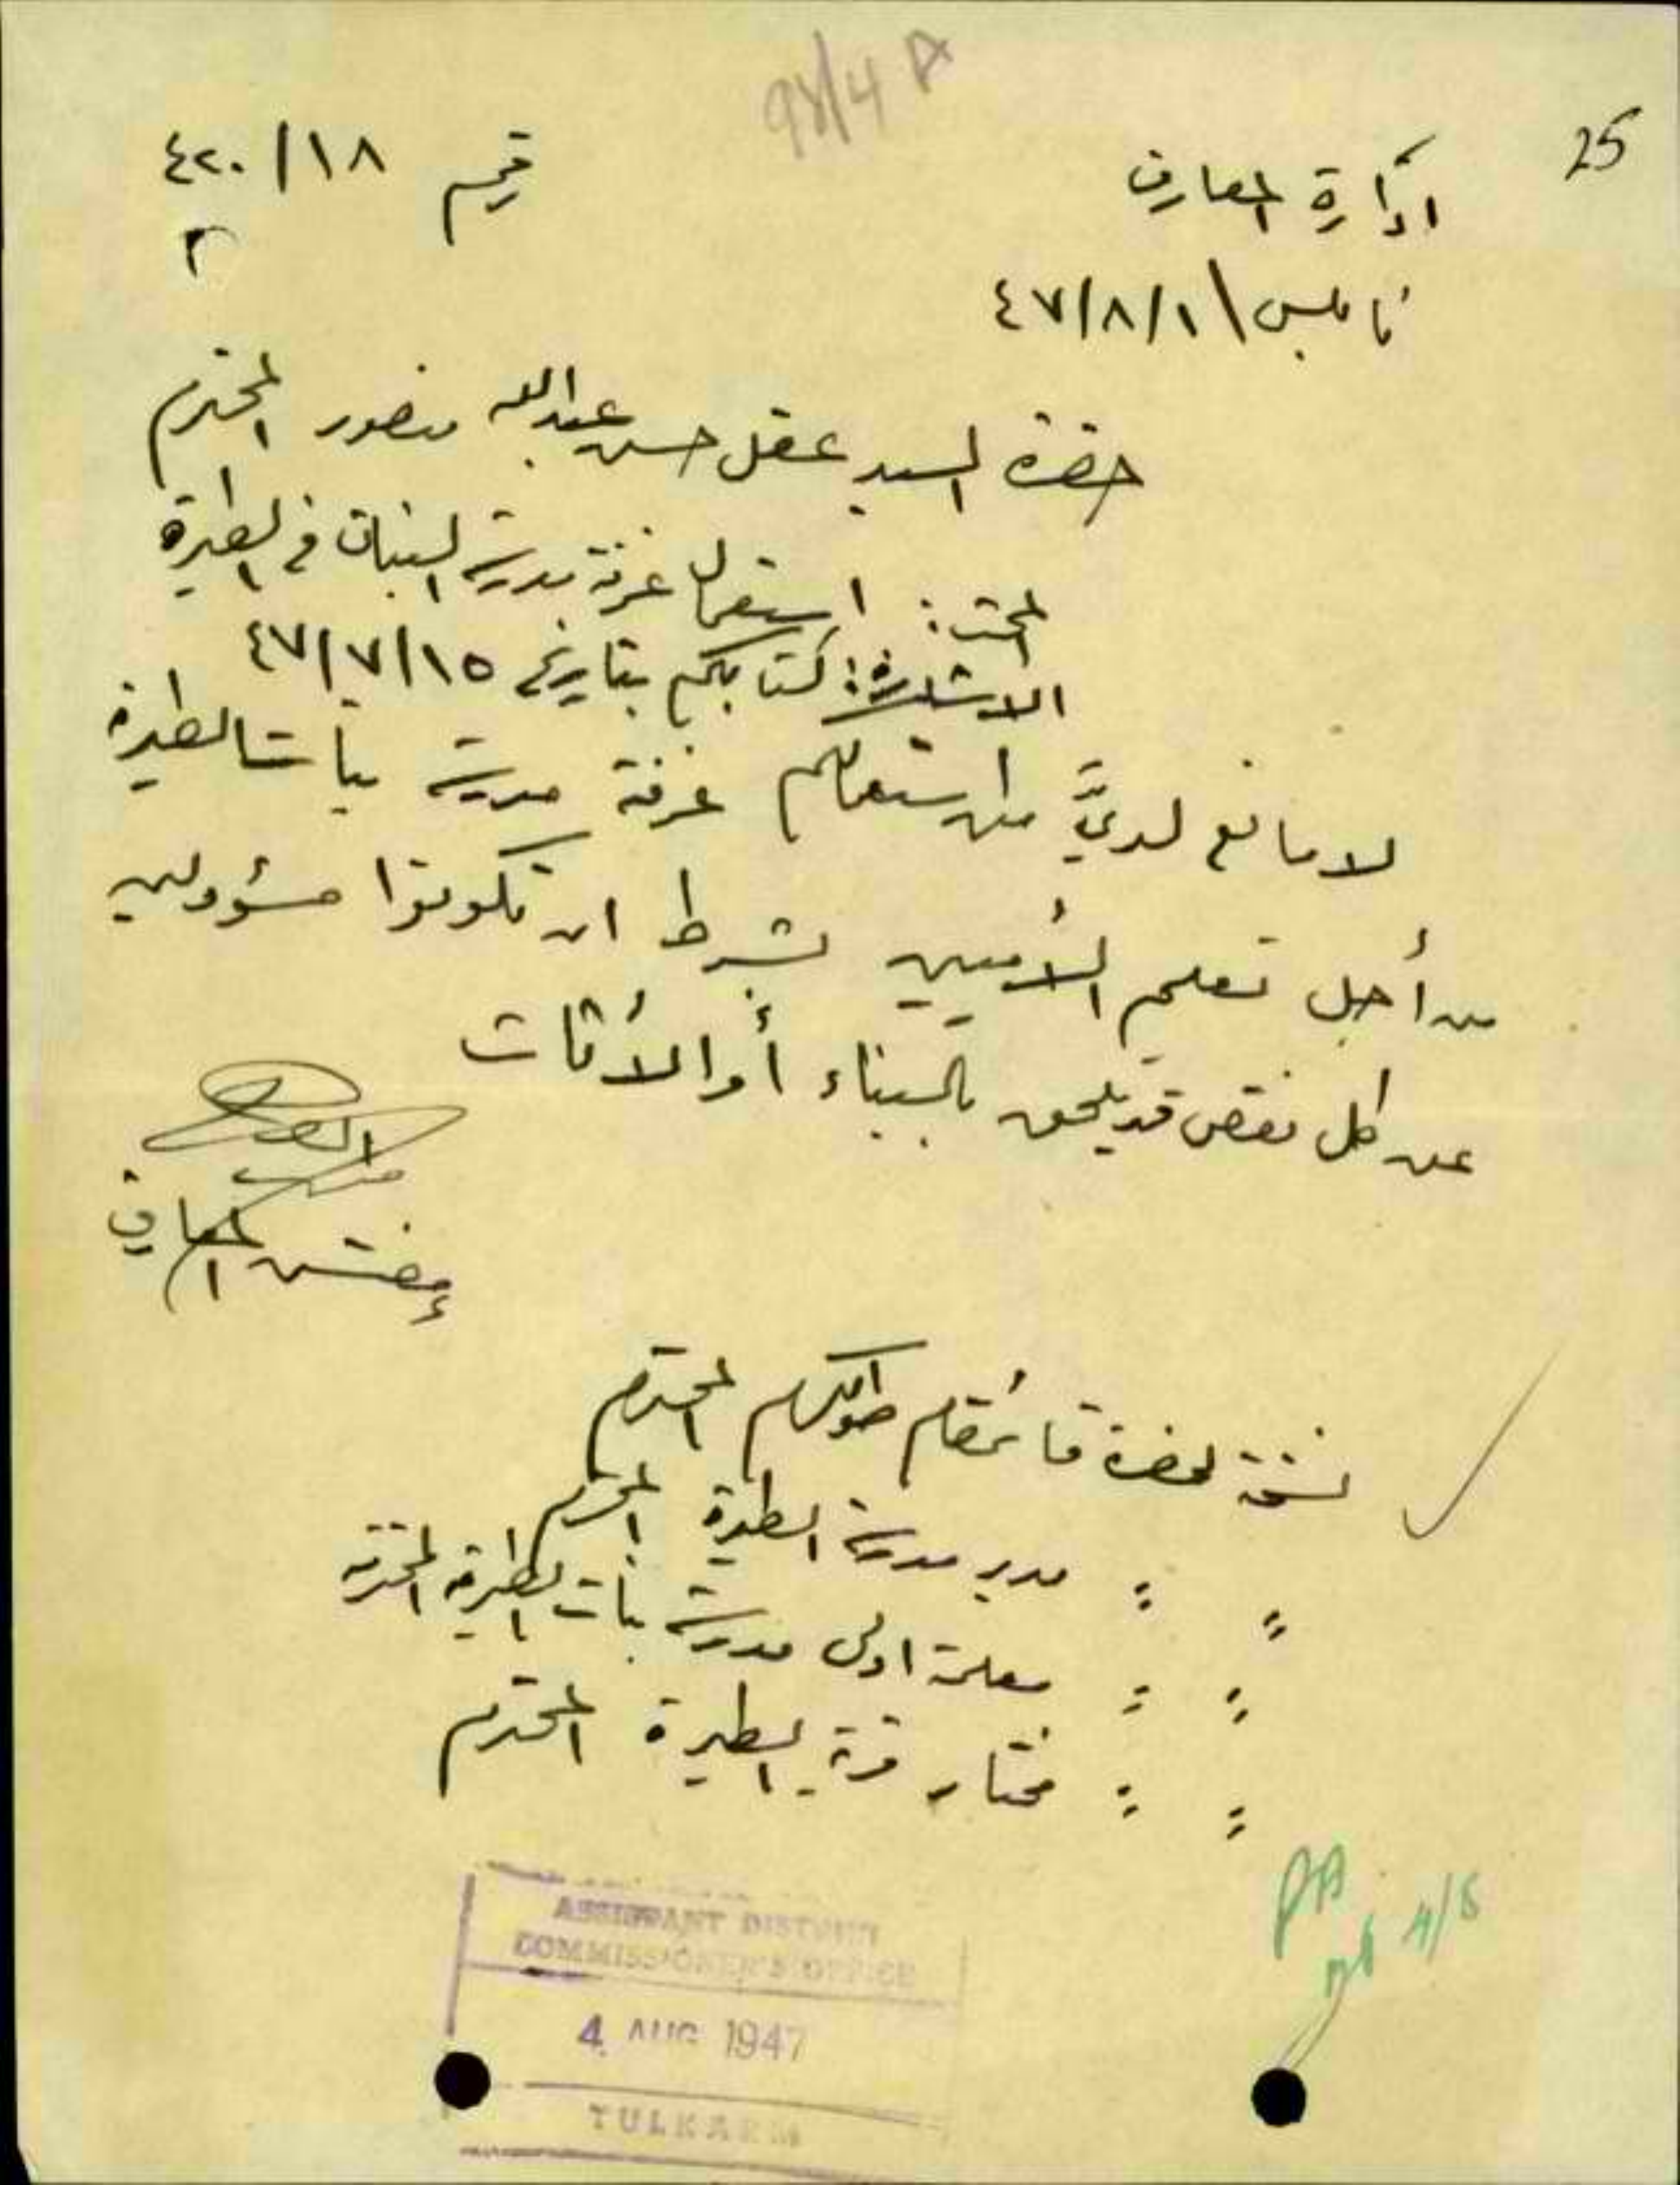 98/4 A
25
ادارة المعارف
رقم ١٨/٤٢٠
٣
نابلس \ ٤٧/٨/١
حضرة السيد عقل حسن عبدالله منصور المحترم
استعمال غرفة مدرسة البنات في الطيرة
الاشارة: كتابكم بتاريخ ٤٧/٧/١٥
لا مانع لديَّ من استعمالكم غرفة مدرسة بنات الطيرة
من أجل تعليم الأميين بشرط ان تكونوا مسؤولين
عن كل نقص قد يلحق بالبناء أو الأثاث
مفتش المعارف
نسخة لحضرة قائمقام طولكرم المحترم
" : مدير مدرسة الطيرة المحترم
" : معلمة اولى مدرسة بنات الطيرة المحترمة
" : مختار قرية الطيرة المحترم
ASSISTANT DISTRICT
COMMISSIONER'S OFFICE
4 AUG 1947
TULKARM
PA
4/8